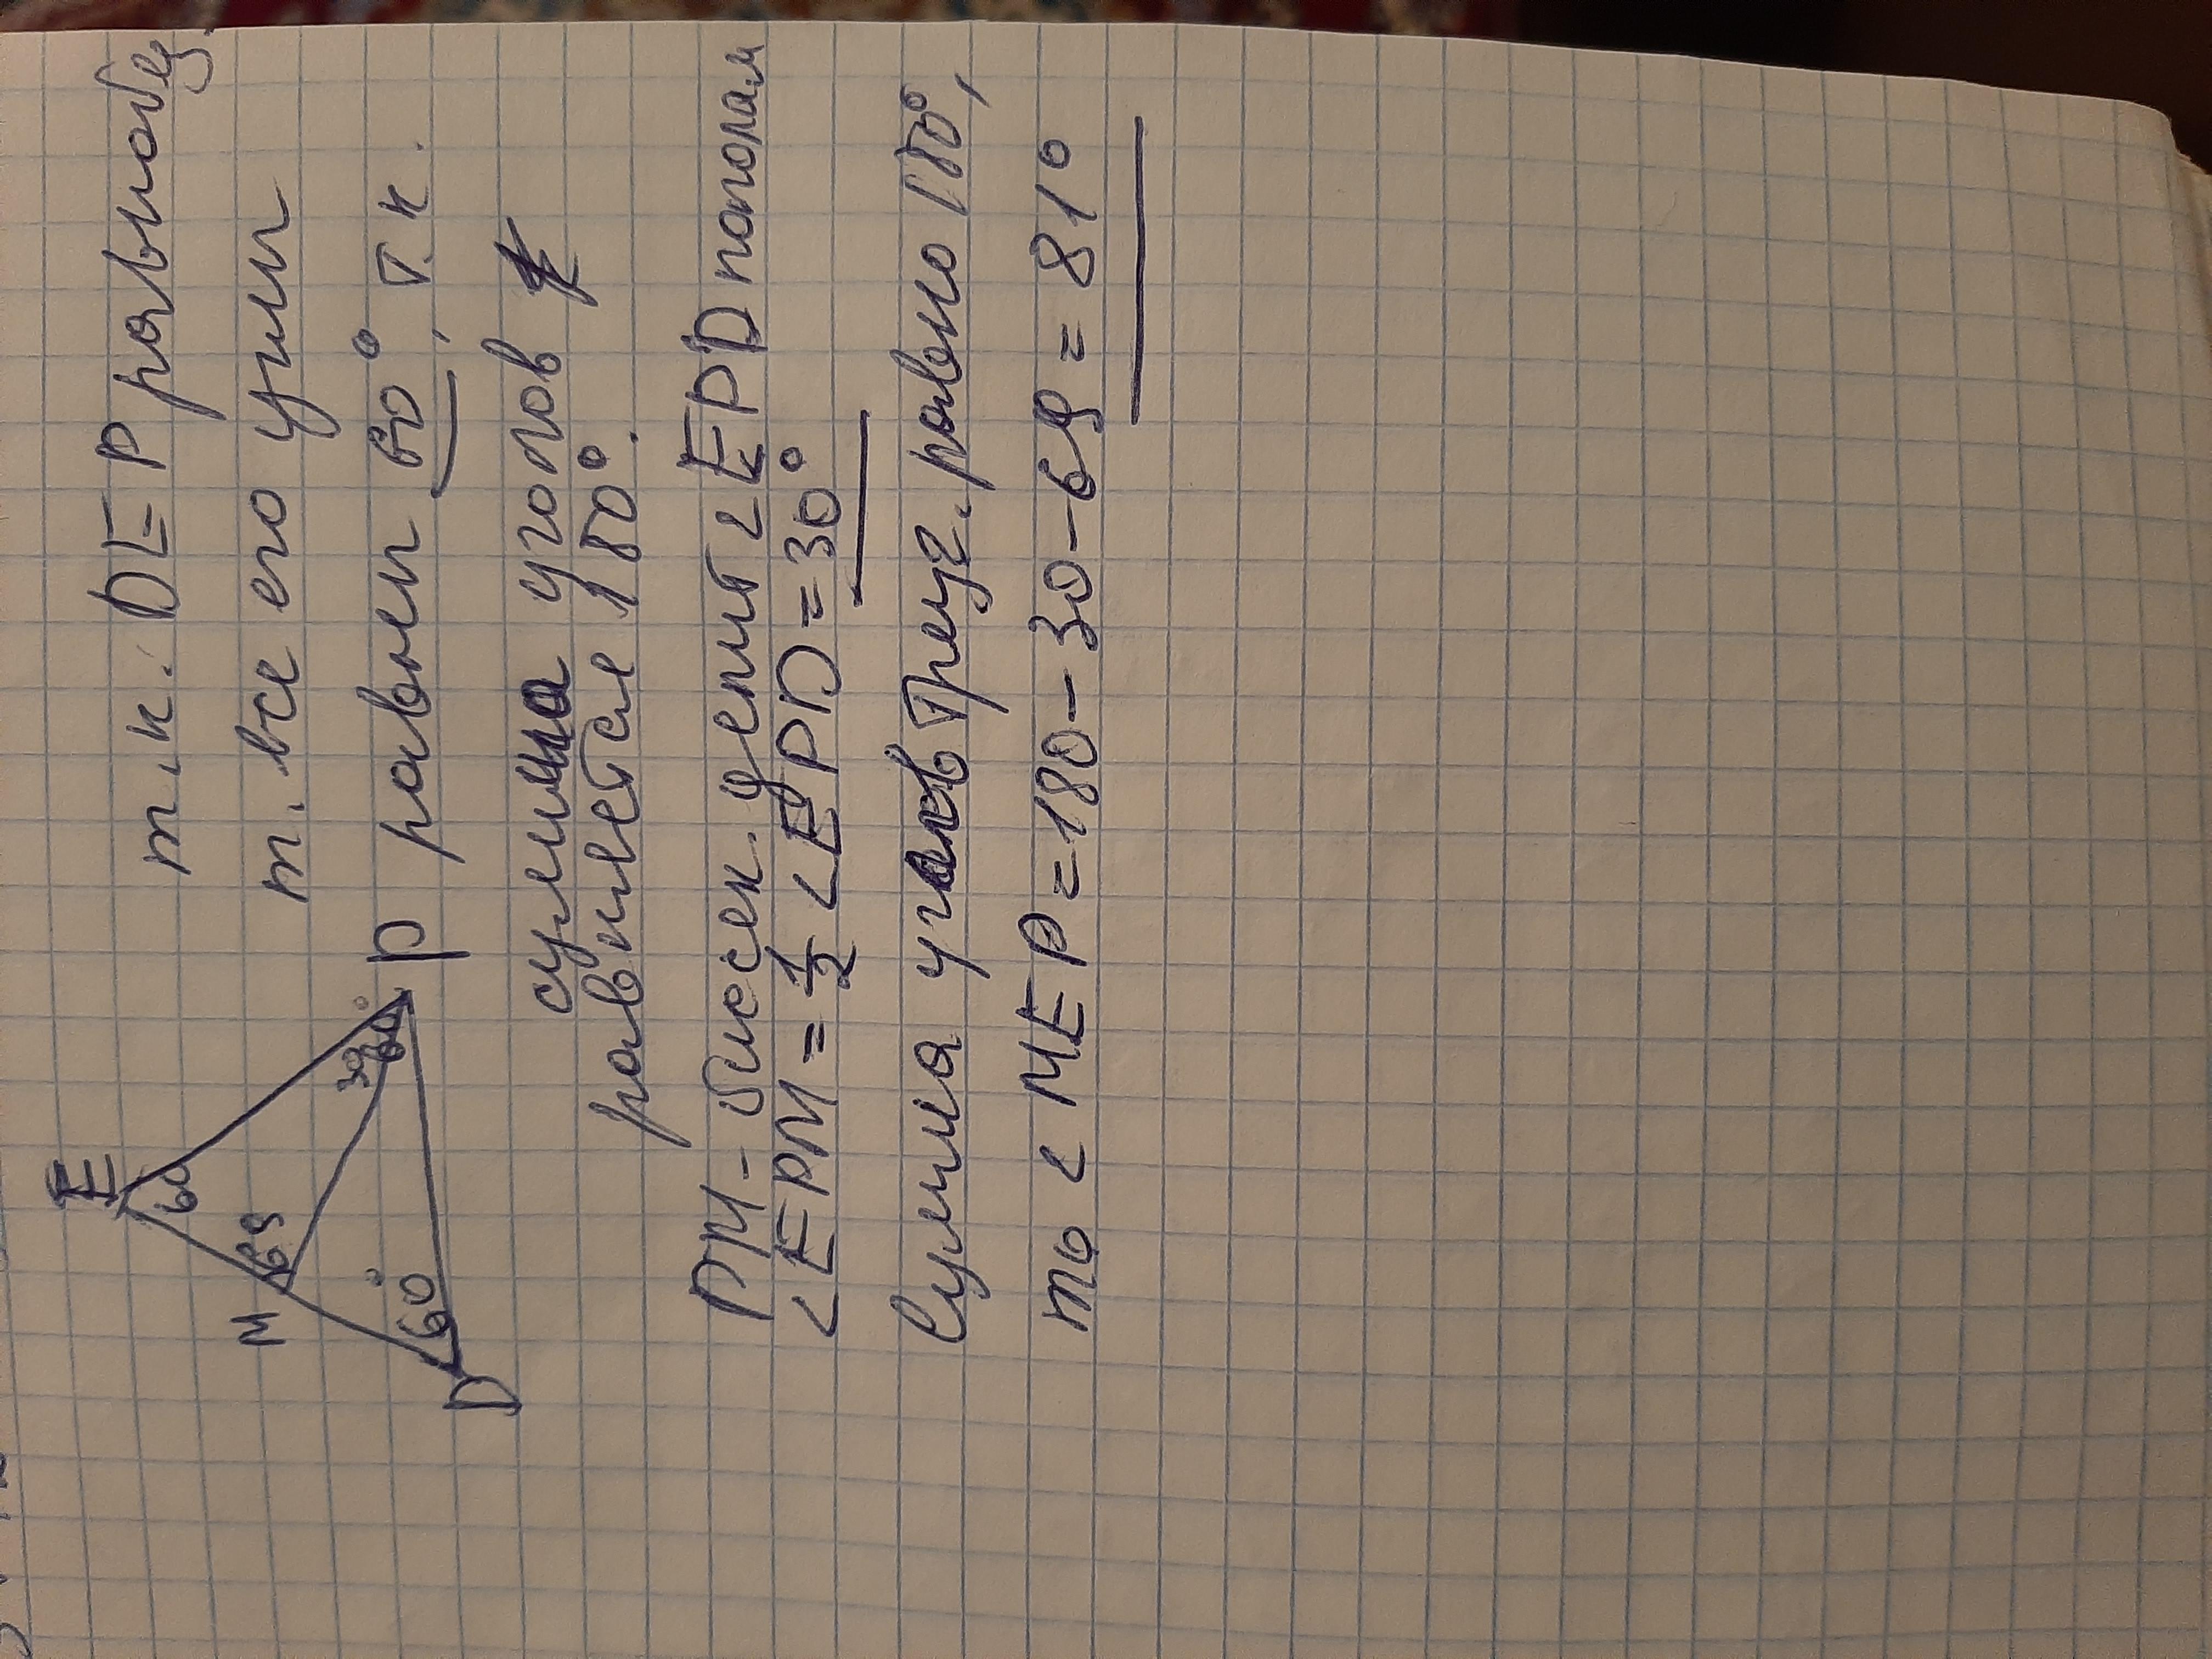 E
M
D
P
60
69
30°
60°
60°
т.к. DEP равнобед.
т. все его углы
равен 60°, т.к.
сумма углов
равняется 180°.
PM - биссек. делит <EPD пополам
<EPM = 1/2 <EPD = 30°
Сумма углов треуг. равно 180°,
то < MEP = 180 - 30 - 69 = 81°